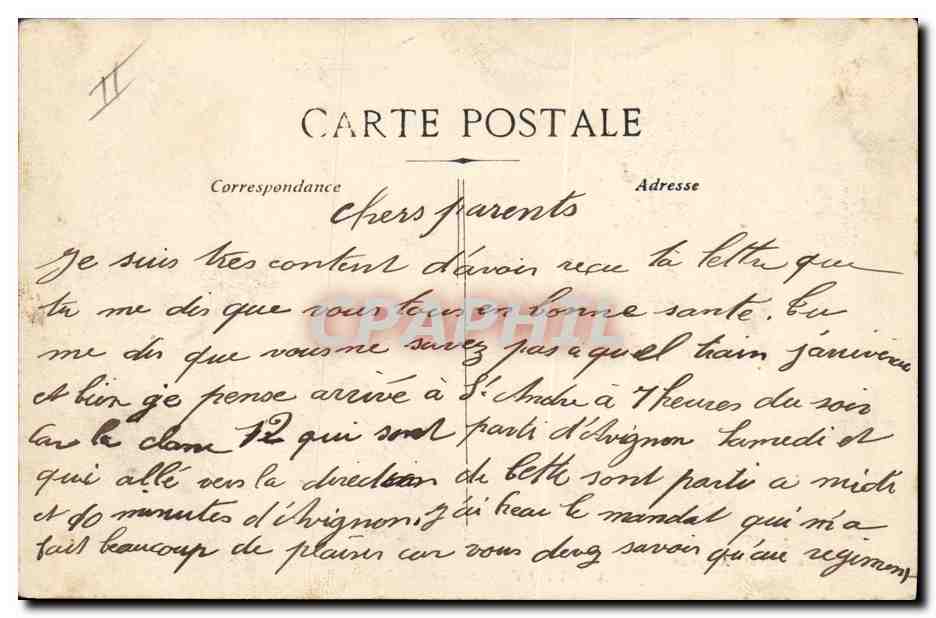 II
CARTE POSTALE
Correspondance Adresse
chers parents
Je suis tres content d'avoir reçu ta lettre que
tu me dis que vous tous en bonne santé. tu
me dis que vous ne savez pas a quel train j'arriverai
et bien je pense arrivé à St André à 7 heures du soir
Car la classe 12 qui sont parti d'Avignon Samedi et
qui allé vers la direction de Cette sont parti a midi
et 40 minutes d'Avignon. J'ai recu le mandat qui m'a
fait beaucoup de plaisir car vous devez savoir qu'au regiment
CPAPHIL